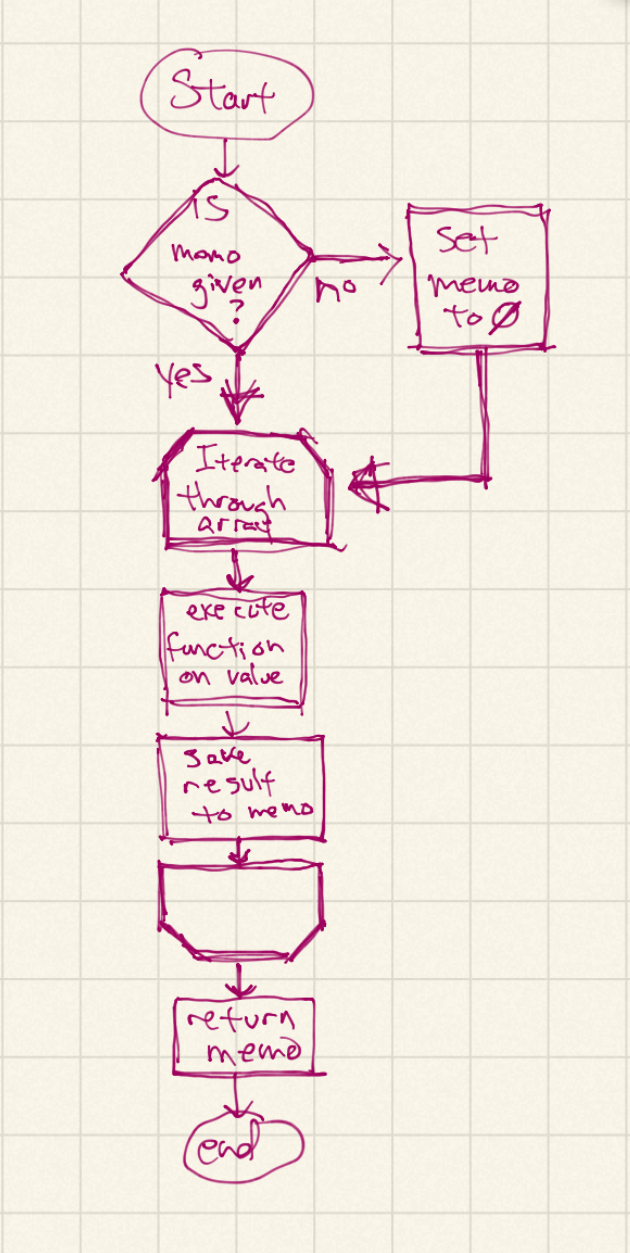 Start
IS
momo
given
?
no
Set
memo
to 0
Yes
Iterate
through
array
execute
function
on value
save
result
to memo
return
memo
end